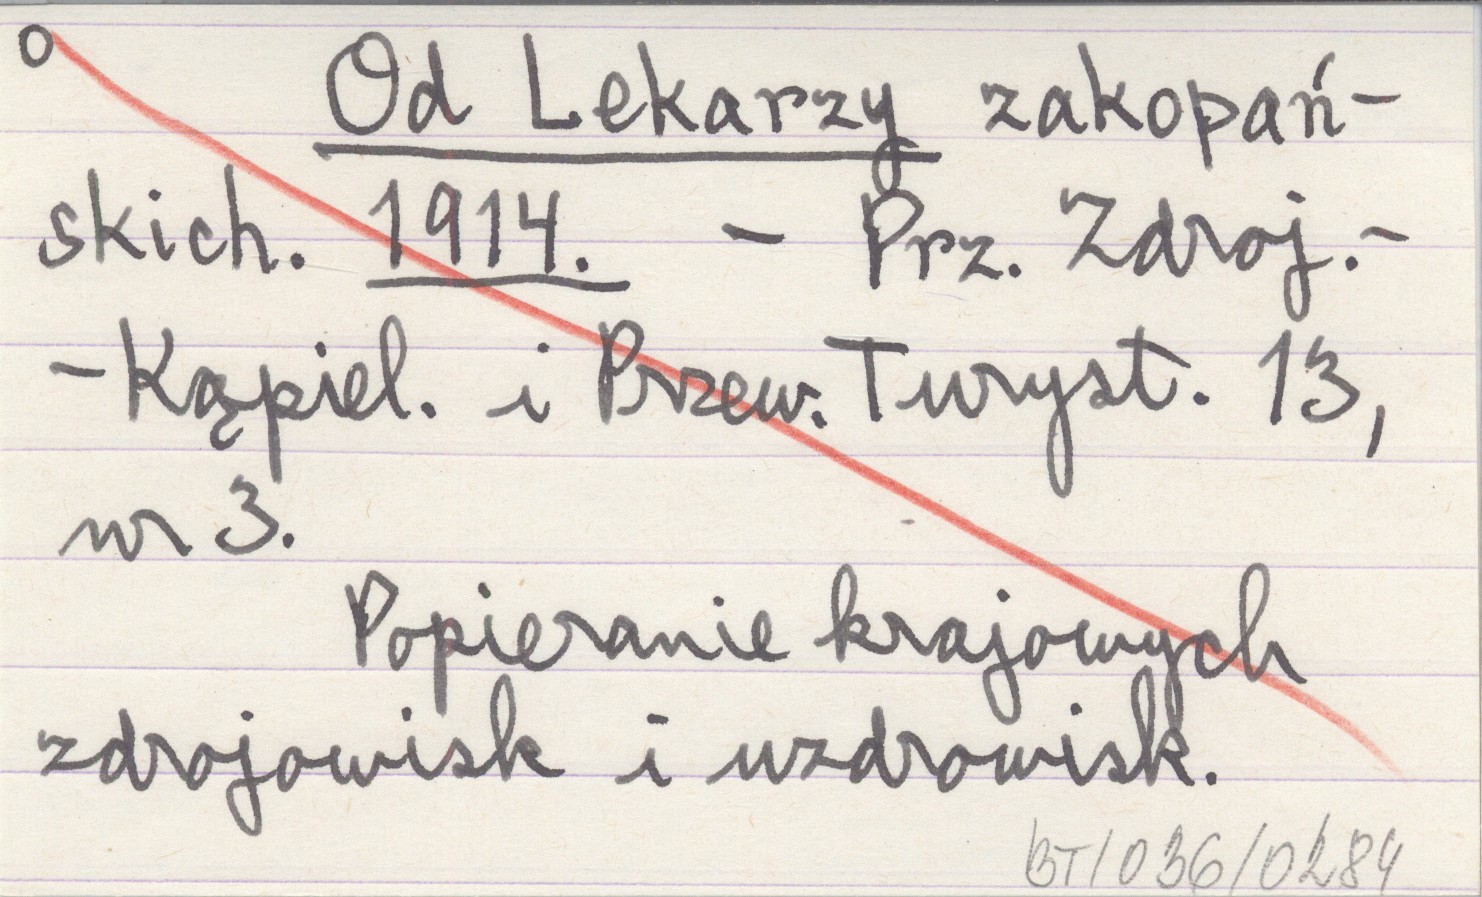 o
Od Lekarzy zakopań-
skich. 1914. - Prz. Zdroj.-
-Kąpiel. i Przew. Turyst. 13,
nr 3.
Popieranie krajowych
zdrojowisk i uzdrowisk.
BT/036/0284